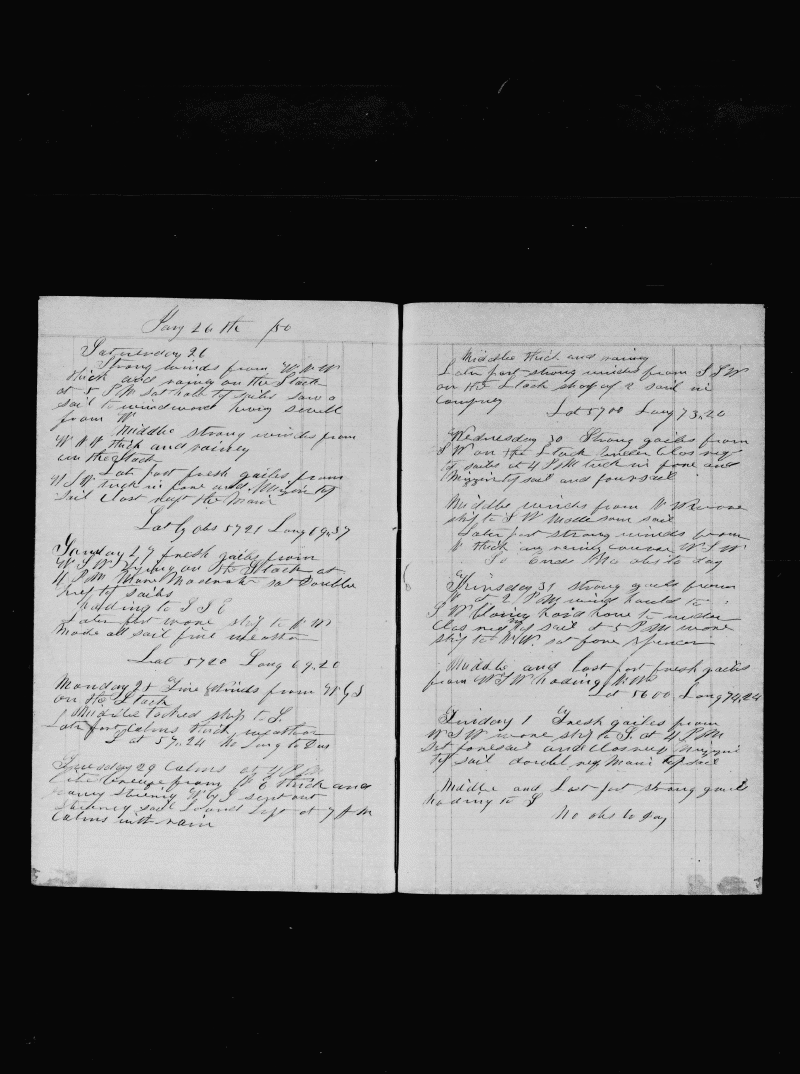 Jan 26 th /80
Saturday 26
Strong winds from W N W
thick and rainy on the Stack
at 5 P M set hole tf sailes saw a
sail to windword hevig swell
from W
Middle strong winds from
W N W thick and rainey
on the Stack
Later part fresh gailes from
W S W tuck in fore and Mizin tf
sail clost reft the Main
Lat by obs 57 21 Long 69.37
Sunday 27 fresh gailes from
W S W Lying on the Stack at
4 P M More Moderate set Double
reef tf sailes
hading to S S E
Later part wore ship to N W
made all sail fine weather
Lat 57 20 Long 69.20
Monday 28 Fine Winds from W by S
on the Stack
Middle tacked ship to S.
Later part Calms thick weather
Lat 57.24 No Long to Day
Tuesday 29 Calms at 4 P M
lite breeze from N E thick and
rainy stering W by S sept out
stering sail Lower Left at 7 A M
Calms with rain
Middle thick and rainy
Later part strong winds from S S W
on the Stack ship of 2 sail in
Compney
Lat 57 00 Long 73.20
Wednesday 30 Strong gailes from
S W on the Stack under Clos reef
tf sailes at 4 P M tuck in fore and
Mizzin tf sail and foursail
Middle winds from W Wore
ship to S W Made som sail
Later part strong winds from
W thick and rainy course W S W
So Ends No obs to day
Thirsday 31 strong gails from
W at 2 P M wind hauld to
S W bloing hard hove to under
Clos reef tf sail at 5 P M wore
ship to N W. set fore spencer
Middle and Last part fresh gailes
from W S W hading N W
Lat 56 00 Long 74.24
Friday 1 Fresh gailes from
W S W wore ship to S. at 4 P M
Set foresail and Closreef Mizzin
tf sail double reef Main tf sail
Middle and Last part strong gails
hading to S
No obs to day